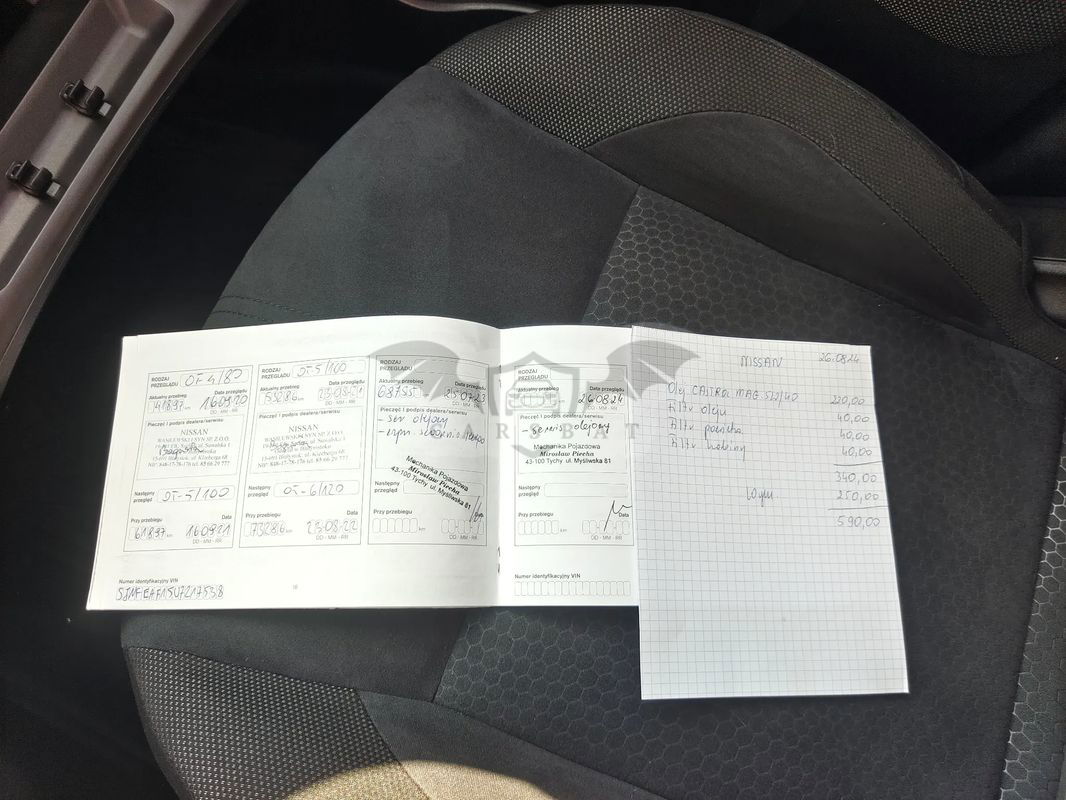 RODZAJ PRZEGLĄDU OT-4/80
Aktualny przebieg Data przeglądu
41837 km 160920
DD - MM - RR
Pieczęć i podpis dealera/serwisu
NISSAN
WASILEWSKI I SYN SP. Z O.O.
Następny przegląd OT-5/100
Przy przebiegu Data
61837 km 160921
DD - MM - RR
RODZAJ PRZEGLĄDU OT-5/100
Aktualny przebieg Data przeglądu
53286 km 23.08.21
DD - MM - RR
Pieczęć i podpis dealera/serwisu
NISSAN
WASILEWSKI I SYN SP. Z O.O.
Następny przegląd OT-6/120
Przy przebiegu Data
73286 km 23.08.22
DD - MM - RR
RODZAJ PRZEGLĄDU
Aktualny przebieg Data przeglądu
68755 25.07.23
Pieczęć i podpis dealera/serwisu
- ser olejowy
Mechanika Pojazdowa
Mirosław Piecha
43-100 Tychy ul. Myśliwska 81
Następny przegląd
Przy przebiegu Data
km
DD - MM - RR
Numer identyfikacyjny VIN
SJNFEAF15U7217538
RODZAJ PRZEGLĄDU
Aktualny przebieg Data przeglądu
km 26.08.24
DD - MM - RR
Pieczęć i podpis dealera/serwisu
- serwis olejowy
Mechanika Pojazdowa
Mirosław Piecha
43-100 Tychy ul. Myśliwska 81
Następny przegląd
Przy przebiegu Data
km
DD - MM - RR
Numer identyfikacyjny VIN
NISSAN 26.08.24
Olej CASTROL MAG 5W40 220,00
filtr oleju 40,00
filtr 40,00
filtr kabiny 40,00
340,00
250,00
590,00
CARSBAT